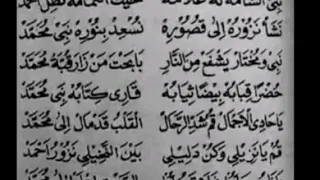 نشأ نزوره إلى قصوره تسعد بنوره نبي محمد
نبي ومختار يشفع من النار يا بخت من زار قبة محمد
خضرا قبابه بيضا ثيابه قاري كتابه نبي محمد
يا حادي الأجمال قم شد الرحال القلب قد مال إلى محمد
قم يا نزيلي وكن دليلي بين النخيلي نزور أحمد